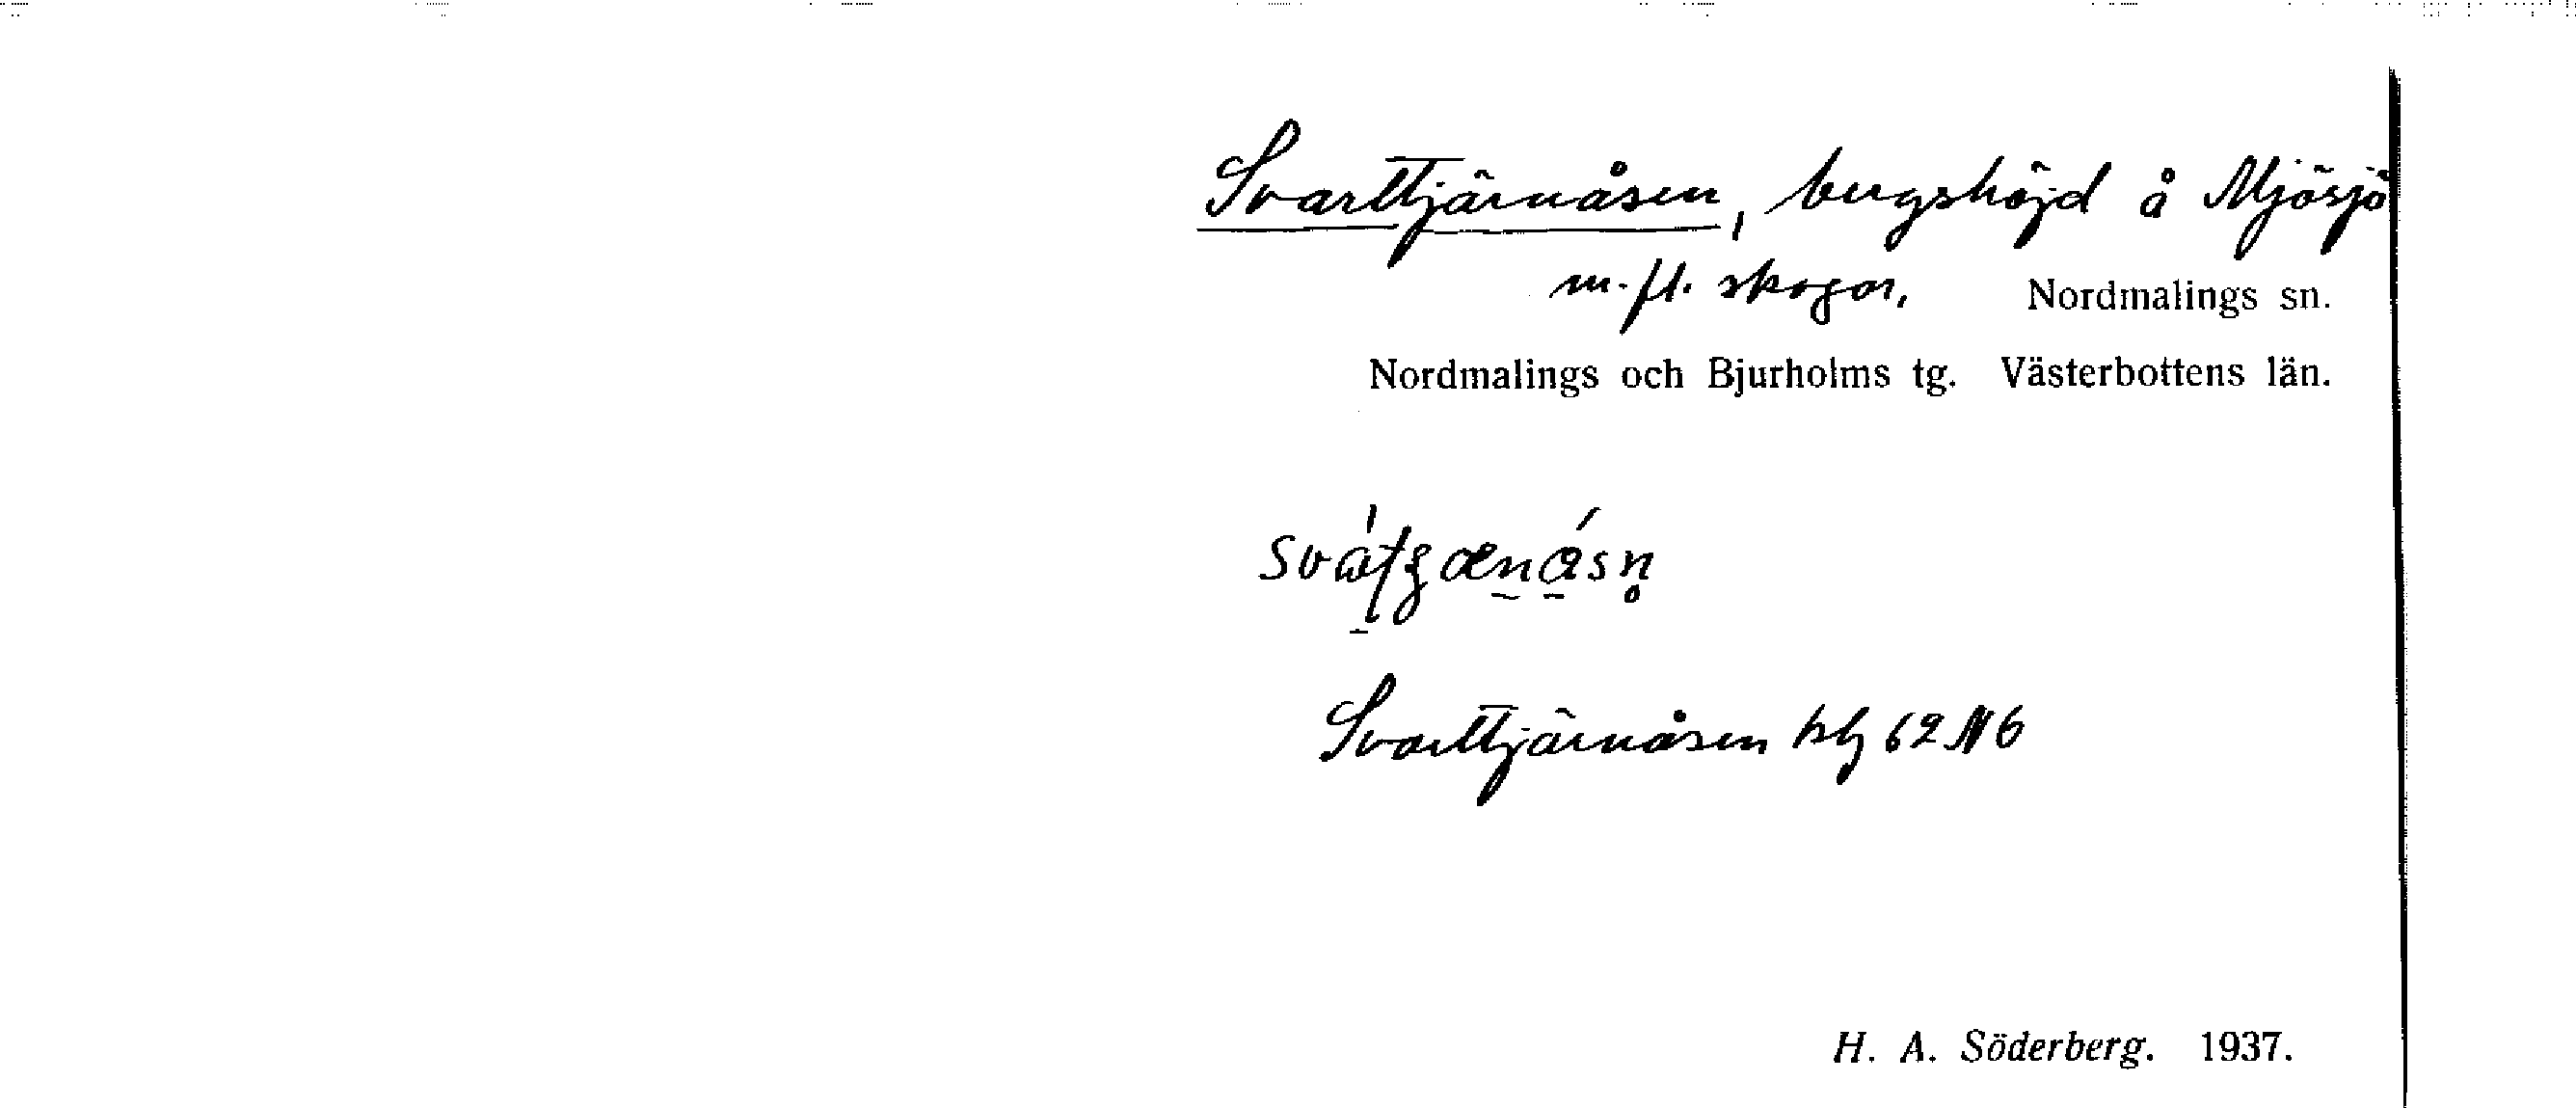 Svarttjärnåsen, bergshöjd å Mjösjö
m.fl. skogar. Nordmalings sn.
Nordmalings och Bjurholms tg. Västerbottens län.
Svarttjärnåsen hbl 62 N6
H. A. Söderberg. 1937.